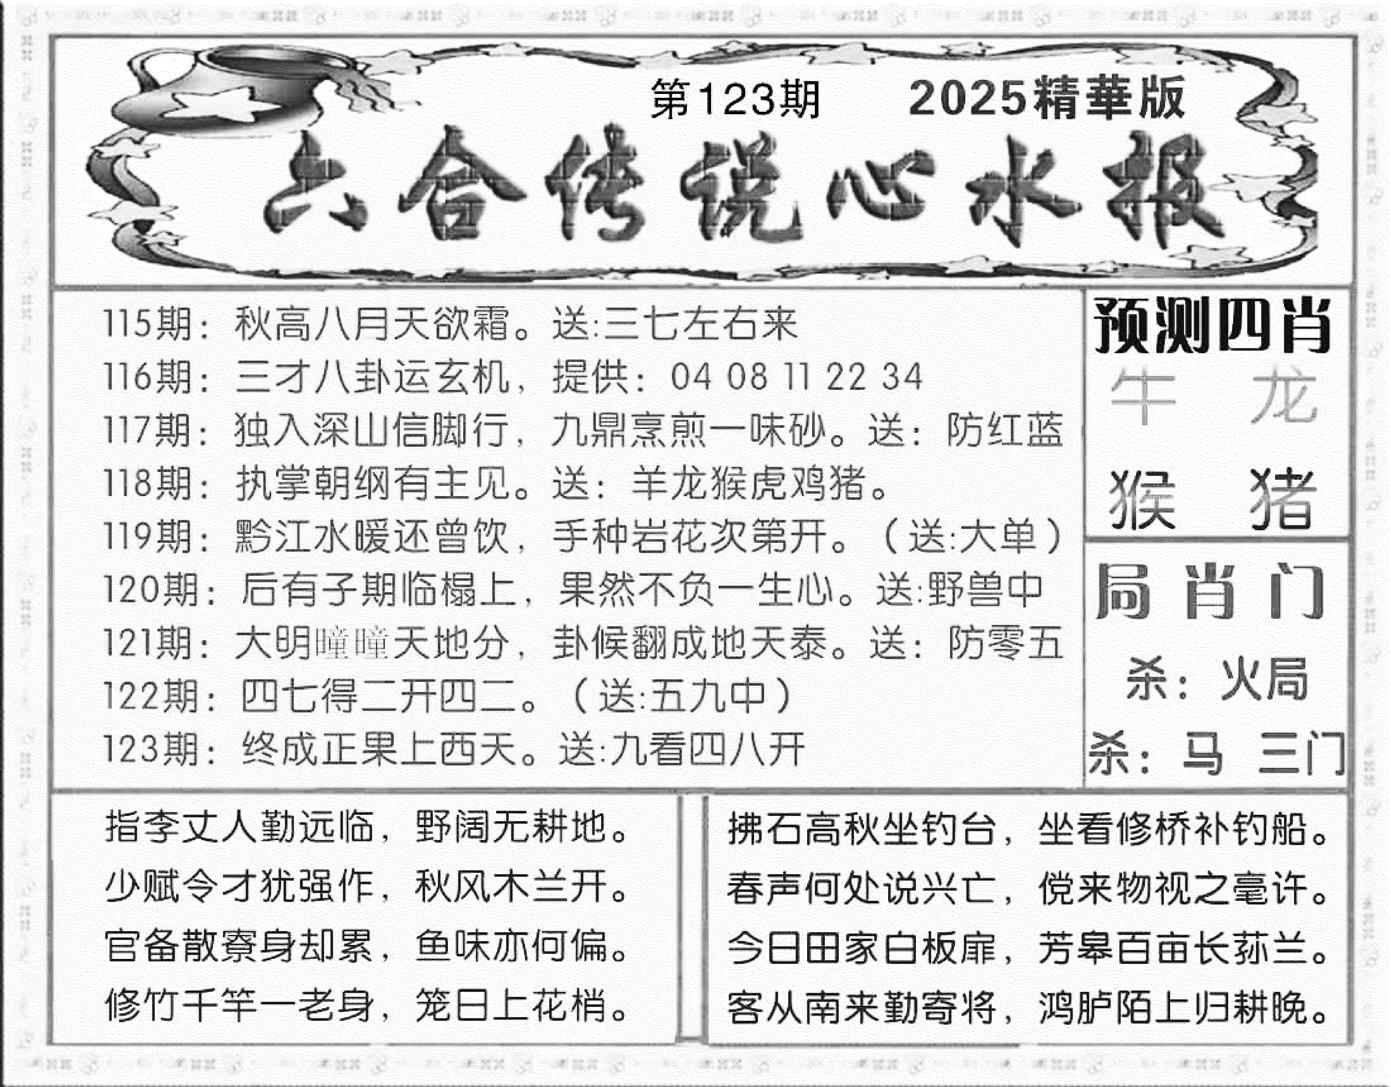 第123期 2025精華版
六合传说心水报
115期：秋高八月天欲霜。送:三七左右来
116期：三才八卦运玄机，提供：04 08 11 22 34
117期：独入深山信脚行，九鼎烹煎一味砂。送：防红蓝
118期：执掌朝纲有主见。送：羊龙猴虎鸡猪。
119期：黔江水暖还曾饮，手种岩花次第开。（送:大单）
120期：后有子期临榻上，果然不负一生心。送:野兽中
121期：大明曈曈天地分，卦候翻成地天泰。送：防零五
122期：四七得二开四二。（送:五九中）
123期：终成正果上西天。送:九看四八开
预测四肖
牛 龙
猴 猪
局肖门
杀：火局
杀：马 三门
指李丈人勤远临，野阔无耕地。
少赋令才犹强作，秋风木兰开。
官备散寮身却累，鱼味亦何偏。
修竹千竿一老身，笼日上花梢。
拂石高秋坐钓台，坐看修桥补钓船。
春声何处说兴亡，傥来物视之毫许。
今日田家白板扉，芳皋百亩长荪兰。
客从南来勤寄将，鸿胪陌上归耕晚。